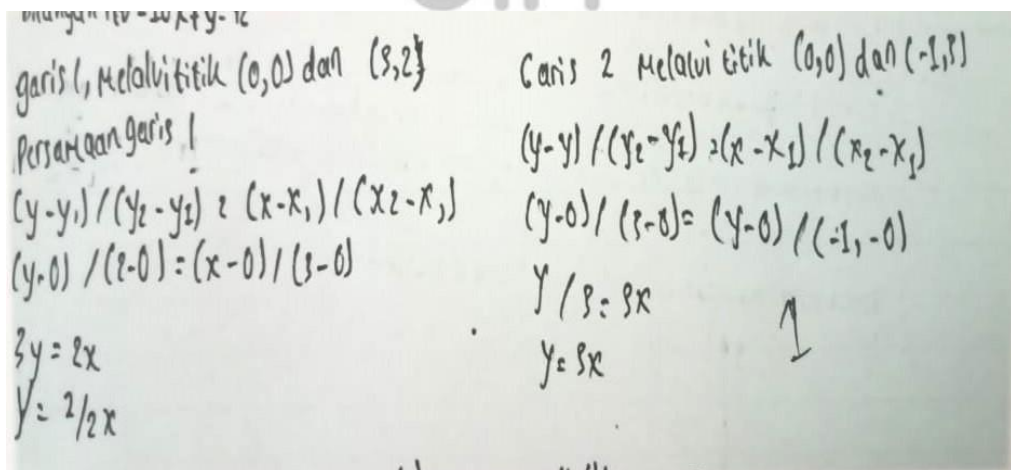 garis 1, Melalui titik (0,0) dan (3,2)
Persamaan garis 1
(y-y1) / (y2-y1) = (x-x1) / (x2-x1)
(y-0) / (2-0) = (x-0) / (3-0)
3y = 2x
y = 2/2x
Garis 2 Melalui titik (0,0) dan (-1,3)
(y-y) / (y2-y1) = (x-x1) / (x2-x1)
(y-0) / (3-0) = (y-0) / (-1,-0)
y/3 = 3x
y = 3x
1